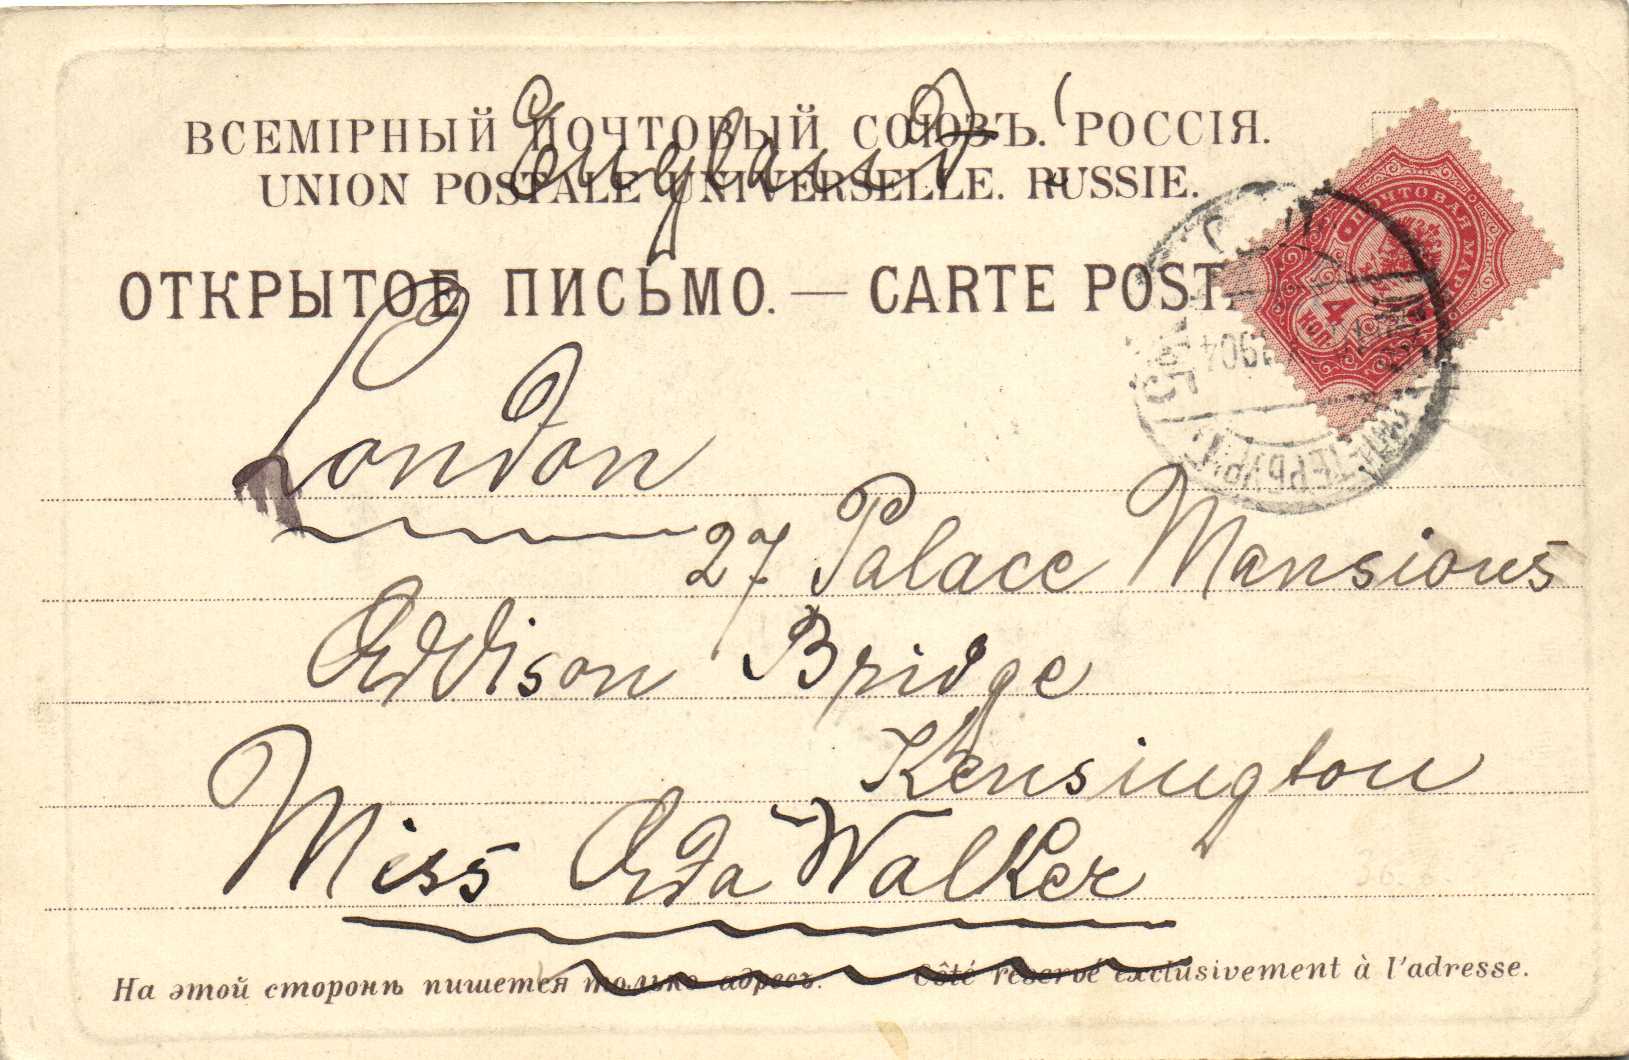 ВСЕМІРНЫЙ ПОЧТОВЫЙ СОЮЗЪ. РОССІЯ.
England!
UNION POSTALE UNIVERSELLE. RUSSIE.
ОТКРЫТОЕ ПИСЬМО. — CARTE POSTA
ПОЧТОВАЯ МАРКА
4 КОП
1904
London
27 Palace Mansions
Addison Bridge
Kensington
Miss Ada Walker
На этой сторонѣ пишется только адресъ. Côté réservé exclusivement à l'adresse.